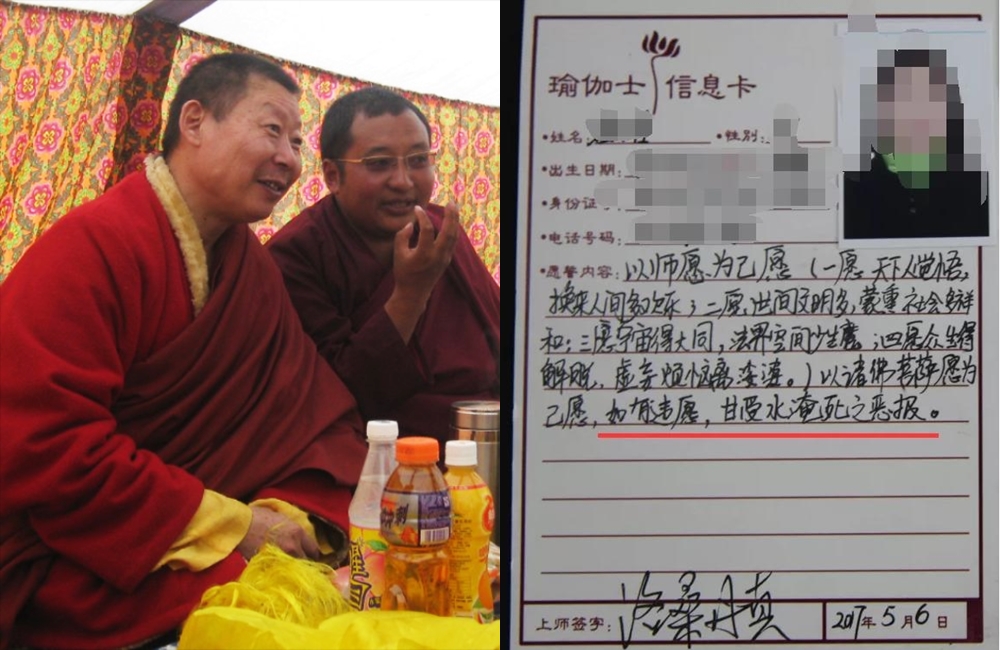 瑜伽士信息卡
•姓名
•性别:
•出生日期:
•身份证
•电话号码:
•愿誓内容: 以师愿为己愿（一愿天下人觉悟,
换来人间多欢乐；二愿世间文明多,蒙熏社会多祥
和；三愿宇宙得大同,法界空间少生魔；四愿众生得
解脱,虚妄烦恼离婆娑。）以诸佛菩萨愿为
己愿,如有违愿,甘受水淹死之恶报。
上师签字:
2017年5月6日